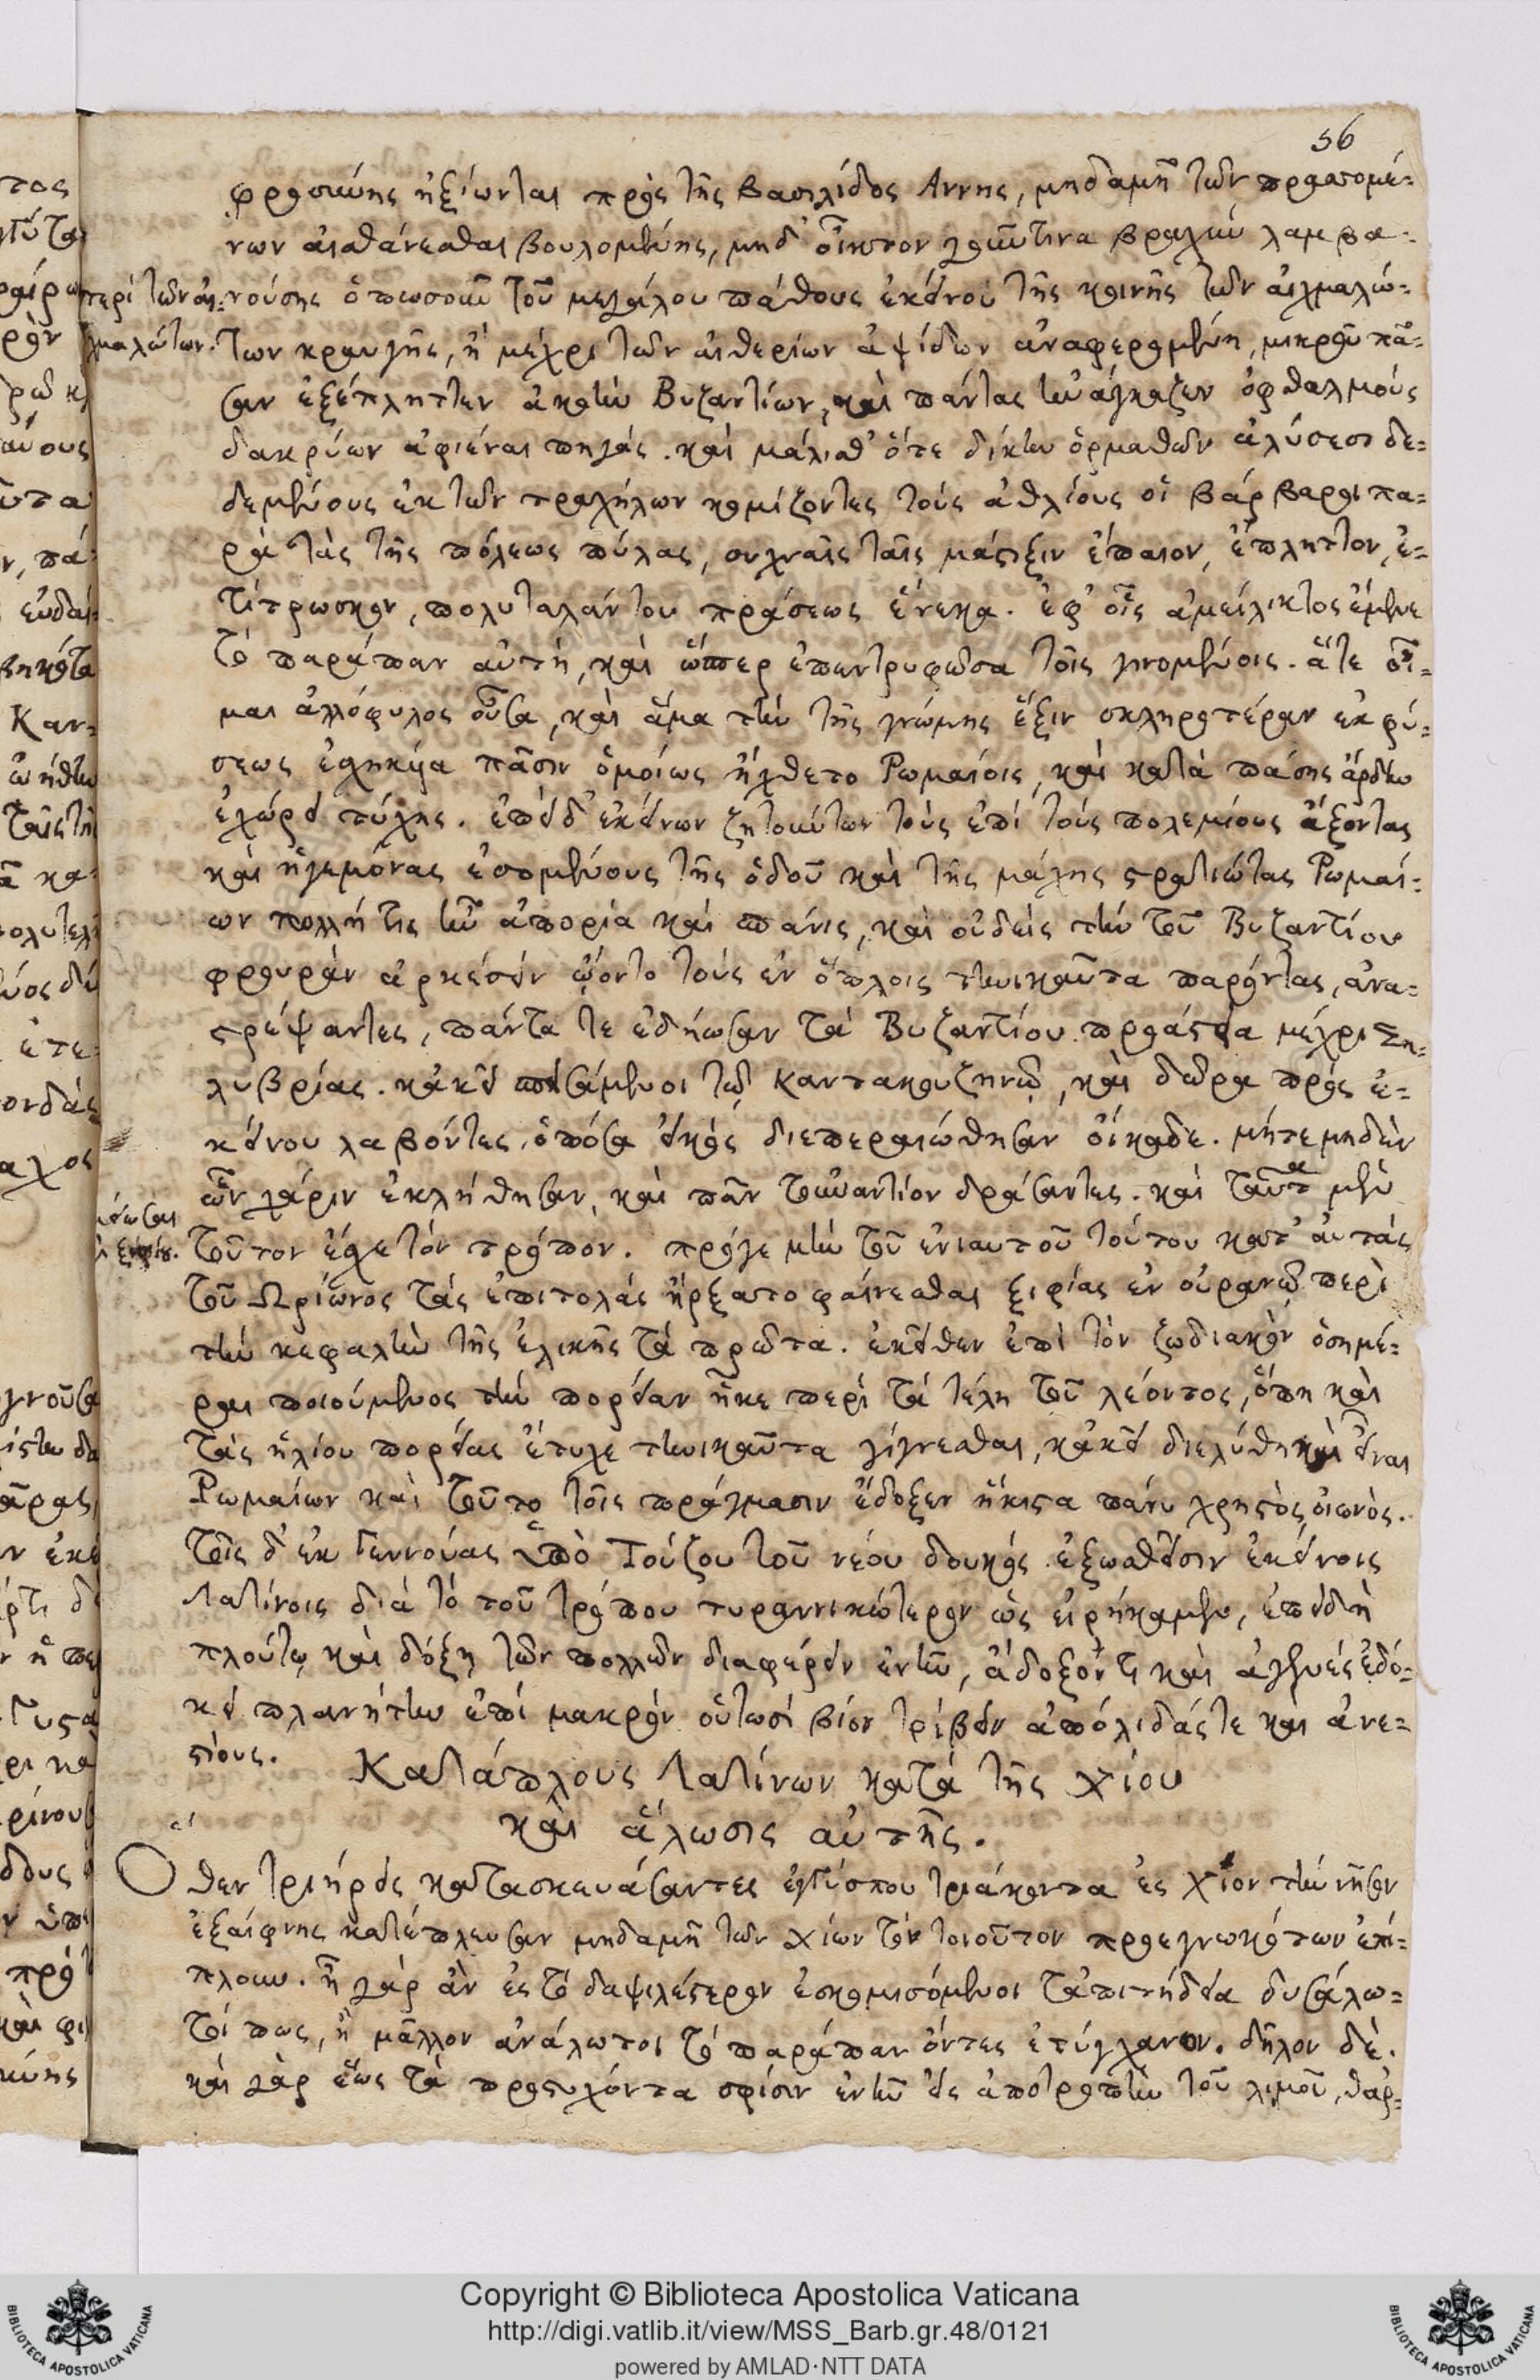 56
φροσύνης ἠξίωνται πρὸς τῆς βασιλίδος Ἄννης, μηδαμῆ τῶν πραττομέ-
νων αἰσθάνεσθαι βουλομένης, μηδ' οἶκτον γοῦν τινα βραχὺν λαμβα-
περὶ τῶν αἰ-
νούσης ὁπωσοῦν τοῦ μεγάλου πάθους ἐκείνου τῆς κοινῆς τῶν αἰχμαλώ-
χμαλώτων.
των κραυγῆς, ἣ μέχρι τῶν αἰθερίων ἁψίδων ἀναφερομένη, μικροῦ πᾶ-
σαν ἐξέπληττεν ἀκοὴν Βυζαντίων, καὶ πάντας ἠνάγκαζεν ὀφθαλμοὺς
δακρύων ἀφιέναι πηγάς. καὶ μάλισθ' ὅτε δίκην ὁρμαθῶν ἁλύσεσι δε-
δεμένους ἐκ τῶν τραχήλων κομίζοντες τοὺς ἀθλίους οἱ βάρβαροι πα-
ρὰ τὰς τῆς πόλεως πύλας, συχναῖς ταῖς μάστιξιν ἔπαιον, ἔπληττον, ἐ-
τίτρωσκον, πολυταλάντου πράσεως ἕνεκα. ἐφ' οἷς ἀμείλικτος ἔμενε
τὸ παράπαν αὐτὴ, καὶ ὥσπερ ἐπεντρυφῶσα τοῖς γινομένοις. ἅτε οἶ-
μαι ἀλλόφυλος οὖσα, καὶ ἅμα τὴν τῆς γνώμης ἕξιν σκληροτέραν ἐκ φύ-
σεως ἐσχηκυῖα πᾶσιν ὁμοίως ἤχθετο Ῥωμαίοις, καὶ κατὰ πάσης ἄρδην
ἐχώρει τύχης. ἐπεὶ δ' ἐκείνων ζητούντων τοὺς ἐπὶ τοὺς πολεμίους ἄξοντας
καὶ ἡγεμόνας ἐσομένους τῆς ὁδοῦ καὶ τῆς μάχης στρατιώτας Ῥωμαί-
ων πολλή τις ἦν ἀπορία καὶ σπάνις, καὶ οὐδεὶς τὴν τοῦ Βυζαντίου
φρουρὰν ἀρκέσειν ᾤοντο τοὺς ἐν ὅπλοις τηνικαῦτα παρόντας, ἀνα-
στρέψαντες, πάντα τε ἐδῄωσαν τὰ Βυζαντίου προάστεια μέχρι Ση-
λυβρίας. κἀκεῖ σπεισάμενοι τῷ Καντακουζηνῷ, καὶ δῶρα πρὸς ἐ-
κείνου λαβόντες ὁπόσα εἰκὸς διεπεραιώθησαν οἴκαδε. μήτε μηδὲν
ὧν χάριν ἐκλήθησαν, καὶ πᾶν τοὐναντίον δράσαντες. καὶ ταῦτα μὲν
τοῦτον ἔσχε τὸν τρόπον. πρό γε μὴν τοῦ ἐνιαυτοῦ τούτου κατ' αὐτὰς
τοῦ Ὠρίωνος τὰς ἐπιτολὰς ἤρξατο φαίνεσθαι ξιφίας ἐν οὐρανῷ περὶ
τὴν κεφαλὴν τῆς ἑλικῆς τὰ πρῶτα. ἐκεῖθεν ἐπὶ τὸν ζωδιακὸν ὁσημέ-
ραι ποιούμενος τὴν πορείαν ἧκε περὶ τὰ τέλη τοῦ λέοντος, ὅπη καὶ
τὰς ἡλίου πορείας ἔτυχε τηνικαῦτα γίγνεσθαι, κἀκεῖ διελύθη καὶ εἶναι
Ῥωμαίων καὶ τοῦτο τοῖς πράγμασιν ἔδοξεν ἥκιστα πάνυ χρηστὸς οἰωνὸς.
τοῖς δ' ἐκ Γεννούας ὑπὸ Τούζου τοῦ νέου δουκὸς ἐξωσθεῖσιν ἐκείνοις
Λατίνοις διὰ τὸ τοῦ τρόπου τυραννικώτερον ὡς εἰρήκαμεν, ἐπειδὴ
πλούτῳ καὶ δόξῃ τῶν πολλῶν διαφέρειν ἐνῆν, ἄδοξόν τι καὶ ἀγενὲς ἐδό-
κει πλανήτην ἐπὶ μακρὸν οὑτωσὶ βίον τρίβειν ἀπόλιδάς τε καὶ ἀνε-
στίους.
Κατάπλους Λατίνων κατὰ τῆς Χίου
καὶ ἅλωσις αὐτῆς.
Ὅθεν τριήρεις κατασκευάσαντες τριάκοντα ἐς Χίον τὴν νῆσον
ἐξαίφνης κατέπλευσαν μηδαμῆ τῶν Χίων τὸν τοιοῦτον προεγνωκότων ἐπί-
πλουν. ἦ γὰρ ἂν ἐς τὸ δαψιλέστερον ἐσκομισόμενοι τἀπιτήδεια δυσάλω-
τοί πως, ἢ μᾶλλον ἀνάλωτοι τὸ παράπαν ὄντες ἐτύγχανον. δῆλον δέ.
καὶ γὰρ ἕως τὰ προστυχόντα σφίσιν ἐνῆν εἰς ἀποτροπὴν τοῦ λιμοῦ, θαρ-